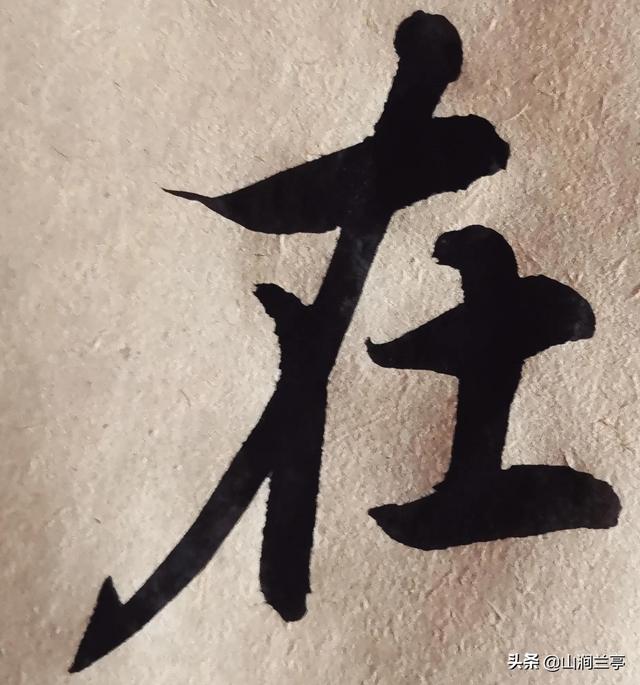 在
头条 @山涧兰亭